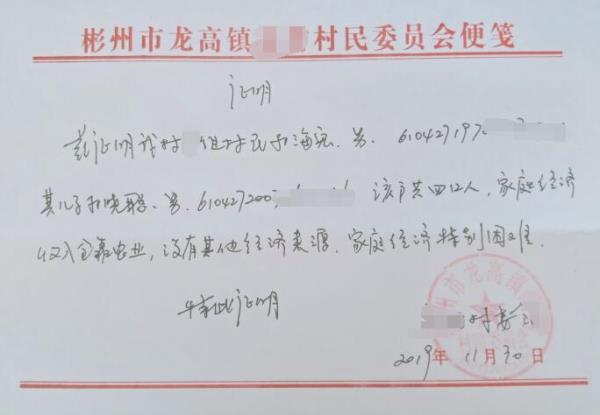 彬州市龙高镇 村民委员会便笺
证明
兹证明我村 组村民 海宏. 男. 610427197
其儿子 晓 . 男. 610427200 该户共四口人, 家庭经济
收入全靠农业, 没有其他经济来源. 家庭经济特别困难.
特此证明
村委会
2019年11月30日